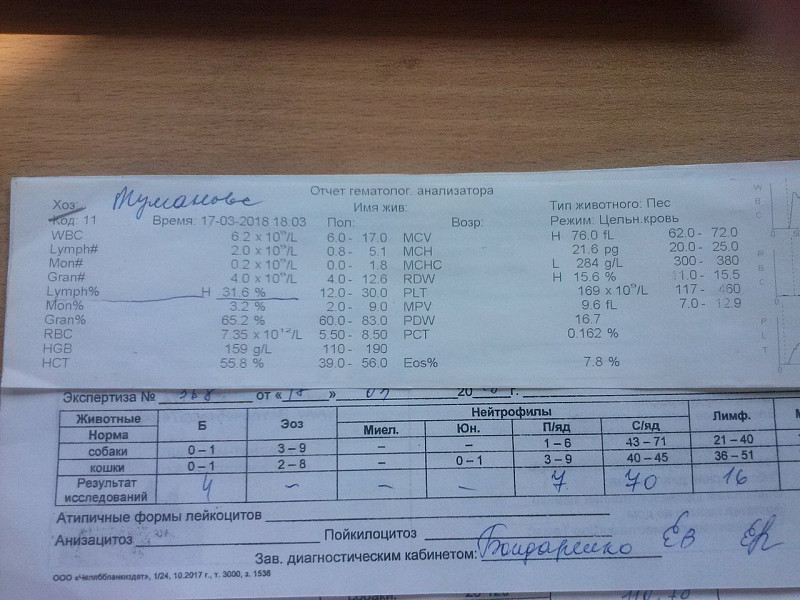 Отчет гематолог. анализатора
Хоз. Тумановс
Имя жив:
Тип животного: Пес
Код: 11 Время: 17-03-2018 18:03 Пол: Возр: Режим: Цельн.кровь
WBC 6.2 x 10^9/L 6.0 - 17.0 MCV H 76.0 fL 62.0 - 72.0
Lymph# 2.0 x 10^9/L 0.8 - 5.1 MCH 21.6 pg 20.0 - 25.0
Mon# 0.2 x 10^9/L 0.0 - 1.8 MCHC L 284 g/L 300 - 380
Gran# 4.0 x 10^9/L 4.0 - 12.6 RDW H 15.6 % 11.0 - 15.5
Lymph% H 31.6 % 12.0 - 30.0 PLT 169 x 10^9/L 117 - 460
Mon% 3.2 % 2.0 - 9.0 MPV 9.6 fL 7.0 - 12.9
Gran% 65.2 % 60.0 - 83.0 PDW 16.7
RBC 7.35 x 10^12/L 5.50 - 8.50 PCT 0.162 %
HGB 159 g/L 110 - 190
HCT 55.8 % 39.0 - 56.0 Eos% 7.8 %
WBC
RBC
PLT
Экспертиза № от « » 20 г.
Животные Б Эоз Нейтрофилы Лимф.
Норма Миел. Юн. П/яд С/яд
собаки 0 – 1 3 – 9 – – 1 – 6 43 – 71 21 – 40
кошки 0 – 1 2 – 8 – 0 – 1 3 – 9 40 – 45 36 – 51
Результат исследований 4 – – – 7 70 16
Атипичные формы лейкоцитов
Анизацитоз Пойкилоцитоз
Зав. диагностическим кабинетом: Бондаренко ЕВ
ООО «Челяббланкиздат», 1/24, 10.2017 г., т. 3000, з. 1536